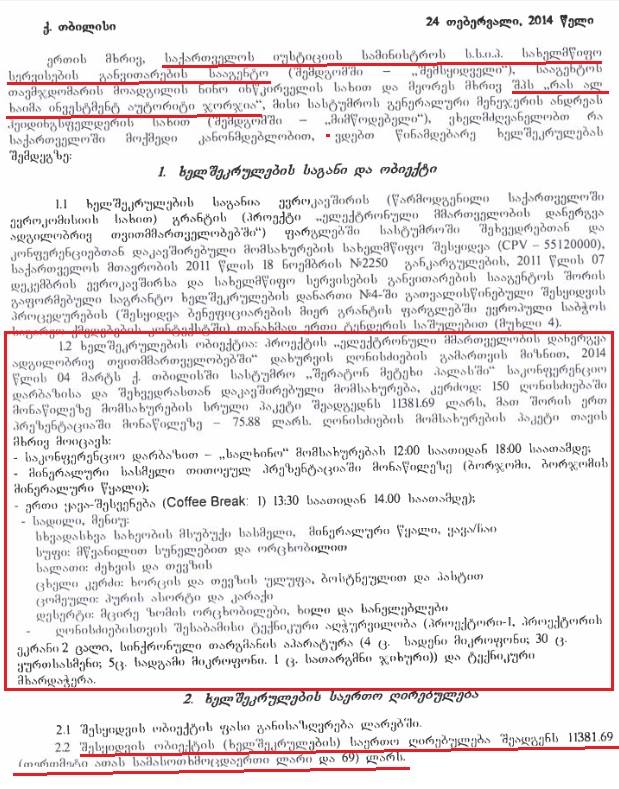 ქ. თბილისი 24 თებერვალი, 2014 წელი
ერთის მხრივ, საქართველოს იუსტიციის სამინისტროს ს.ს.ი.პ. სახელმწიფო
სერვისების განვითარების სააგენტო (შემდგომში – „შემსყიდველი“), სააგენტოს
თავმჯდომარის მოადგილის ნინო ინწკირველის სახით და მეორეს მხრივ შპს „რას ალ
ხაიმა ინვესტმენტ აუტორიტი ჯორჯია“, მისი სასტუმროს გენერალური მენეჯერის ანდრეას
ჰეიდინგსფელდერის სახით (შემდგომში – „მიმწოდებელი“), ვხელმძღვანელობთ რა
საქართველოში მოქმედი კანონმდებლობით, ვდებთ წინამდებარე ხელშეკრულებას
შემდეგზე:
1. ხელშეკრულების საგანი და ობიექტი
1.1 ხელშეკრულების საგანია ევროკავშირის (წარმოდგენილი საქართველოში
ევროკომისიის სახით) გრანტის (პროექტი „ელექტრონული მმართველობის დანერგვა
ადგილობრივ თვითმმართველობებში“) ფარგლებში სასტუმროში შეხვედრებთან და
კონფერენციებთან დაკავშირებული მომსახურების სახელმწიფო შესყიდვა (CPV – 55120000),
საქართველოს მთავრობის 2011 წლის 18 ნოემბრის №2250 განკარგულების, 2011 წლის 07
დეკემბრის ევროკავშირსა და სახელმწიფო სერვისების განვითარების სააგენტოს შორის
გაფორმებული საგრანტო ხელშეკრულების დანართი №4-ში გათვალისწინებული შესყიდვის
პროცედურების (შესყიდვა ბენეფიციარების მიერ გრანტის ფარგლებში ევროპული საბჭოს
საგარეო ქმედებების კონტექსტში) თანახმად ერთი ტენდერის საშუალებით (მუხლი 4).
1.2 ხელშეკრულების ობიექტია: პროექტის „ელექტრონული მმართველობის დანერგვა
ადგილობრივ თვითმმართველობებში“ დახურვის ღონისძიების გამართვის მიზნით, 2014
წლის 04 მარტს ქ. თბილისში სასტუმრო „შერატონ მეტეხი პალასში“ საკონფერენციო
დარბაზისა და შეხვედრასთან დაკავშირებული მომსახურება, კერძოდ: 150 ღონისძიებაში
მონაწილეზე მომსახურების სრული პაკეტი შეადგედნს 11381.69 ლარს, მათ შორის ერთ
პრეზენტაციაში მონაწილეზე – 75.88 ლარს. ღონისძიების მომსახურების პაკეტი თავის
მხრივ მოიცავს:
- საკონფერენციო დარბაზით – „სალხინო“ მომსახურებას 12:00 საათიდან 18:00 საათამდე;
- მინერალური სასმელი თითოეულ პრეზენტაციაში მონაწილეზე (ბორჯომი, ბორჯომის
მინერალური წყალი);
- ერთი ყავა-შესვენება (Coffee Break: 1) 13:30 საათიდან 14.00 საათამდე);
- სადილი, მენიუ:
სხვადასხვა სახეობის მსუბუქი სასმელი, მინერალური წყალი, ყავა/ჩაი
სუფი: მწვანილით სუნელებით და ორცხობილით
სალათი: ძეხვის და თევზის
ცხელი კერძი: ხორცის და თევზის ულუფა, ბოსტნეულით და პასტით
ცომეული: პურის ასორტი და კარაქი
დესერტი: მცირე ზომის ორცხობილები, ხილი და სანელებლები
- ღონისძიებისთვის შესაბამისი ტექნიკური აღჭურვილობა (პროექტორი-1, პროექტორის
ეკრანი 2 ცალი, სინქრონული თარგმანის აპარატურა (4 ც. სადენი მიკროფონი; 30 ც.
ყურთსასმენი; 5ც. სადგამი მიკროფონი. 1 ც. სათარგმნი ჯიხური)) და ტექნიკური
მხარდაჭერა.
2. ხელშეკრულების საერთო ღირებულება
2.1 შესყიდვის ობიექტის ფასი განისაზღვრება ლარებში.
2.2 შესყიდვის ობიექტის (ხელშეკრულების) საერთო ღირებულება შეადგენს 11381.69
(თერთმეტი ათას სამასოთხმოცდაერთი ლარი და 69) ლარს.